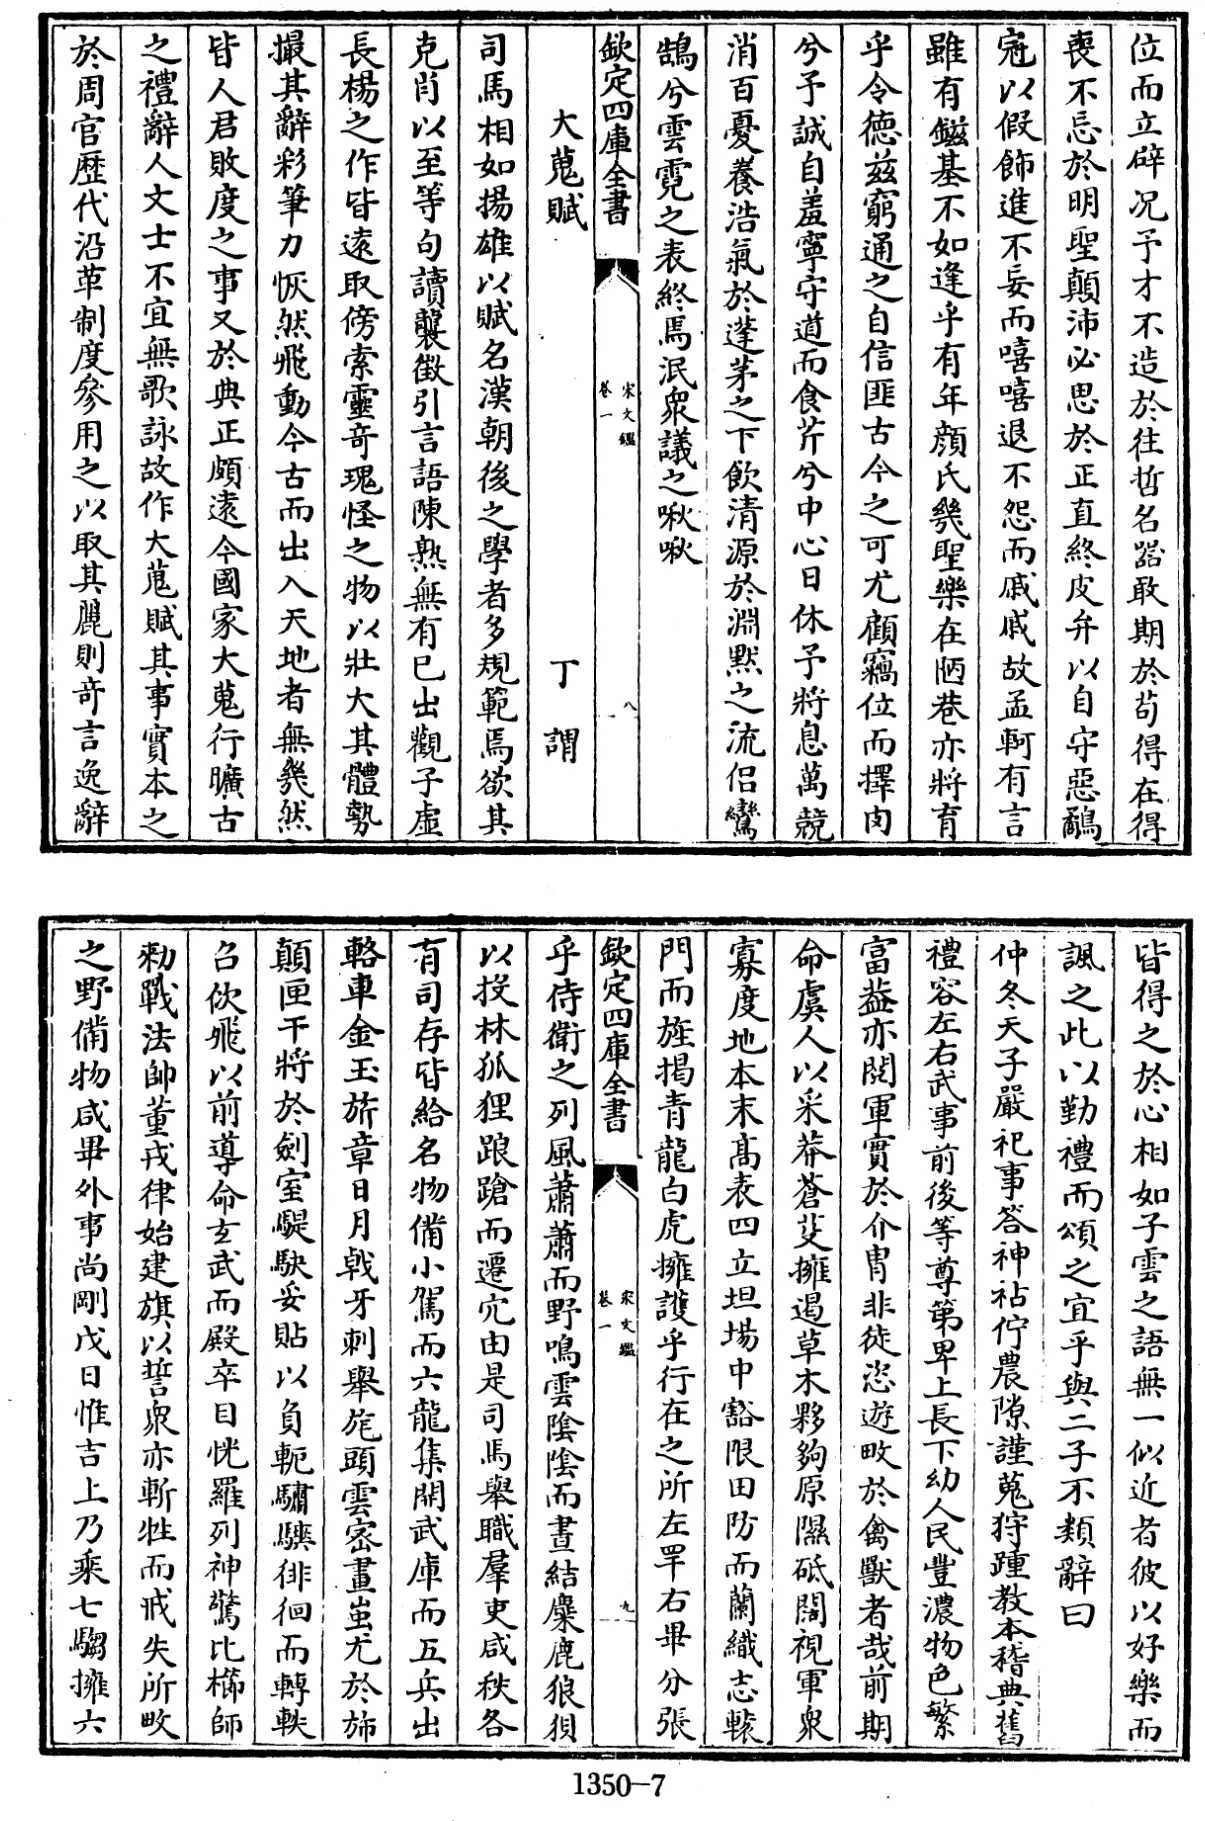 位而立辟况予才不造於往哲名器敢期於苟得在得
喪不忘於明聖顛沛必思於正直終皮弁以自守惡鷸
冠以假飾進不妄而嘻嘻退不怨而戚戚故孟軻有言
雖有鎡基不如逢乎有年顔氏幾聖樂在陋巷亦將育
乎令德兹窮通之自信匪古今之可尤顧竊位而擇肉
兮予誠自羞寧守道而食芹兮中心日休予將息萬競
消百憂養浩氣於蓬茅之下飲清源於淵默之流侣鸞
鵠兮雲霓之表終焉泯衆議之啾啾
欽定四庫全書
宋文鑑
卷一
八
大蒐賦
丁謂
司馬相如揚雄以賦名漢朝後之學者多規範焉欲其
克肖以至等句讀襲徵引言語陳熟無有已出觀子虚
長楊之作皆遠取傍索靈竒瑰怪之物以壯大其體勢
撮其辭彩筆力恢然飛動今古而出入天地者無幾然
皆人君敗度之事又於典正頗遠今國家大蒐行曠古
之禮辭人文士不宜無歌詠故作大蒐賦其事實本之
於周官歷代沿革制度參用之以取其麗則竒言逸辭
皆得之於心相如子雲之語無一似近者彼以好樂而
諷之此以勤禮而頌之宜乎與二子不類辭曰
仲冬天子嚴祀事答神祜佇農隙謹蒐狩踵教本稽典舊
禮容左右武事前後等尊第卑上長下幼人民豐濃物色繁
富葢亦閱軍實於介胄非徒恣遊畋於禽獸者哉前期
命虞人以采莽蒼芟擁遏草木夥夠原隰砥闊視軍衆
寡度地本末髙表四立坦場中豁限田防而蘭織志轅
門而旌掲青龍白虎擁護乎行在之所左罕右畢分張
欽定四庫全書
宋文鑑
卷一
九
乎侍衛之列風蕭蕭而野鳴雲陰陰而晝結麋鹿狼狽
以投林狐狸踉蹌而遷穴由是司馬舉職羣吏咸秩各
有司存皆給名物備小駕而六龍集開武庫而五兵出
輅車金玉旂章日月戟牙刺舉旄頭雲密畫蚩尤於斾
顛匣干將於劍室騠駃妥貼以負軛驌驥徘徊而轉軼
召佽飛以前導命玄武而殿卒目恍羅列神驚比櫛師
勑戰法帥董戎律始建旗以誓衆亦斬牲而戒失所畋
之野備物咸畢外事尚剛戊日惟吉上乃乘七騶擁六
1350—7